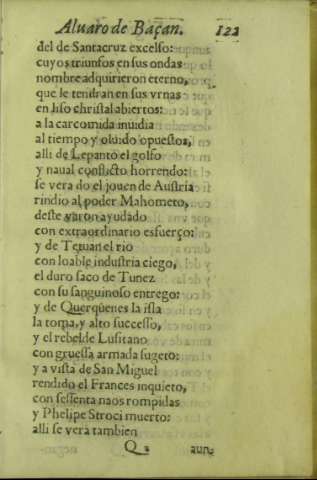 Aluaro de Baçan. 122
del de Santacruz excelso:
cuyos triunfos en sus ondas
nombre adquirieron eterno,
que le tendran en sus vrnas
en liso christal abiertos:
a la carcomida inuidia
al tiempo y oluido opuestos,
alli de Lepanto el golfo
y naual conflicto horrendo:
se vera do el jouen de Austria
rindio al poder Mahometo,
deste varon ayudado
con extraordinario esfuerço:
y de Tetuan el rio
con loable industria ciego,
el duro saco de Tunez
con su sanguinoso entrego:
y de Querquenes la isla
la toma, y alto successo,
y el rebelde Lusitano
con gruessa armada sugeto:
y a vista de San Miguel
rendido el Frances inquieto,
con sessenta naos rompidas
y Phelipe Stroci muerto:
alli se vera tambien
Q 2 aun-